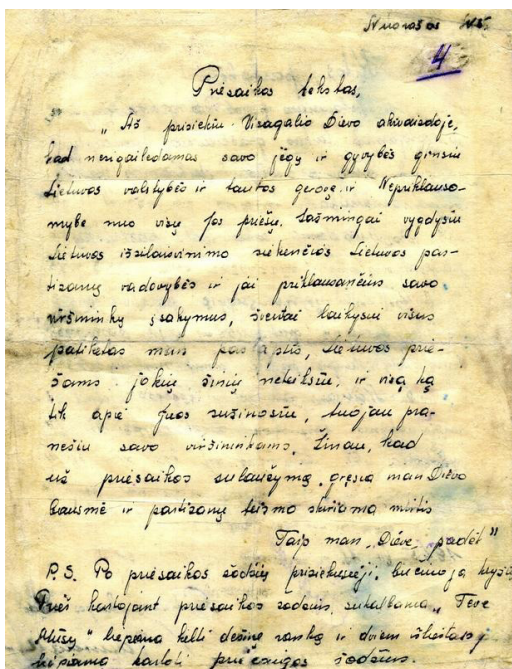 Nuorašas
4
Priesaikos tekstas,
„Aš prisiekiu Visagalio Dievo akivaizdoje,
kad nesigailėdamas savo jėgų ir gyvybės ginsiu
Lietuvos valstybės ir tautos gerovę, ir Nepriklauso-
mybę nuo visų jos priešų. Sąžiningai vygdysiu
Lietuvos išsilaisvinimo siekenčios Lietuvos par-
tizanų vadovybės ir jai priklausančius savo
viršininkų įsakymus, šventai laikysiu visas
patikėtas man paslaptis, Lietuvos prie-
šams jokių žinių neteiksiu, ir visą ką
tik apie juos sužinosiu, tuojau pra-
nešiu savo viršininkams. Žinau, kad
už priesaikos sulaužymą, gresia man Dievo
bausmė ir partizanų teismo skiriama mirtis
Taip man „Dieve, padėt"
P.S. Po priesaikos žodžių prisiekusieji, bučiuoja kryžių
Prieš kartojant priesaikos žodžius, sukalbama „Tėve
Mūsų" liepiama kelti dešinę ranką ir dviem ištiestais
liepiama kartoti žodžius.